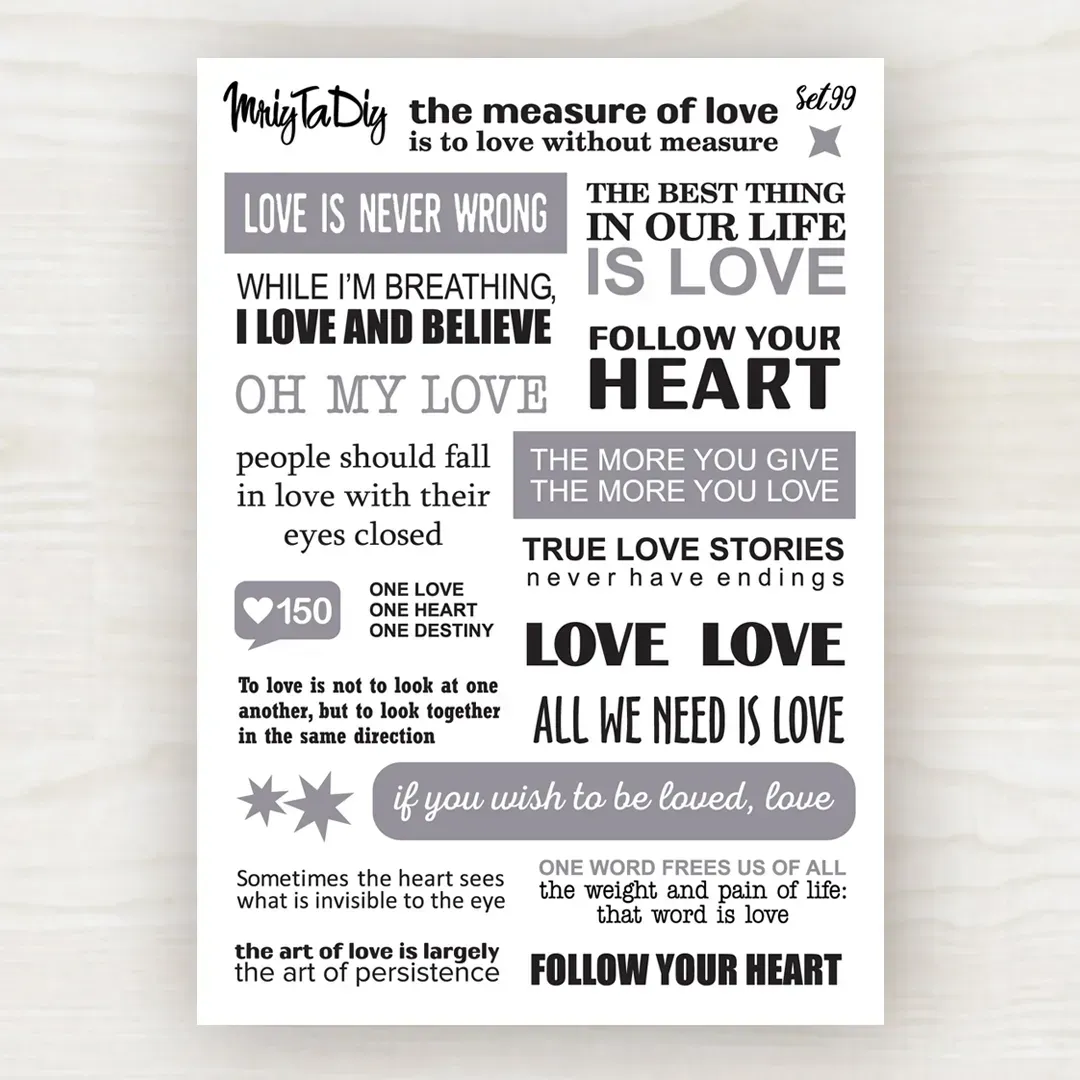 MriyTaDiy
the measure of love
is to love without measure
Set99
LOVE IS NEVER WRONG
THE BEST THING
IN OUR LIFE
IS LOVE
WHILE I'M BREATHING,
I LOVE AND BELIEVE
FOLLOW YOUR
HEART
OH MY LOVE
people should fall
in love with their
eyes closed
THE MORE YOU GIVE
THE MORE YOU LOVE
TRUE LOVE STORIES
never have endings
150
ONE LOVE
ONE HEART
ONE DESTINY
LOVE LOVE
To love is not to look at one
another, but to look together
in the same direction
ALL WE NEED IS LOVE
if you wish to be loved, love
Sometimes the heart sees
what is invisible to the eye
ONE WORD FREES US OF ALL
the weight and pain of life:
that word is love
the art of love is largely
the art of persistence
FOLLOW YOUR HEART